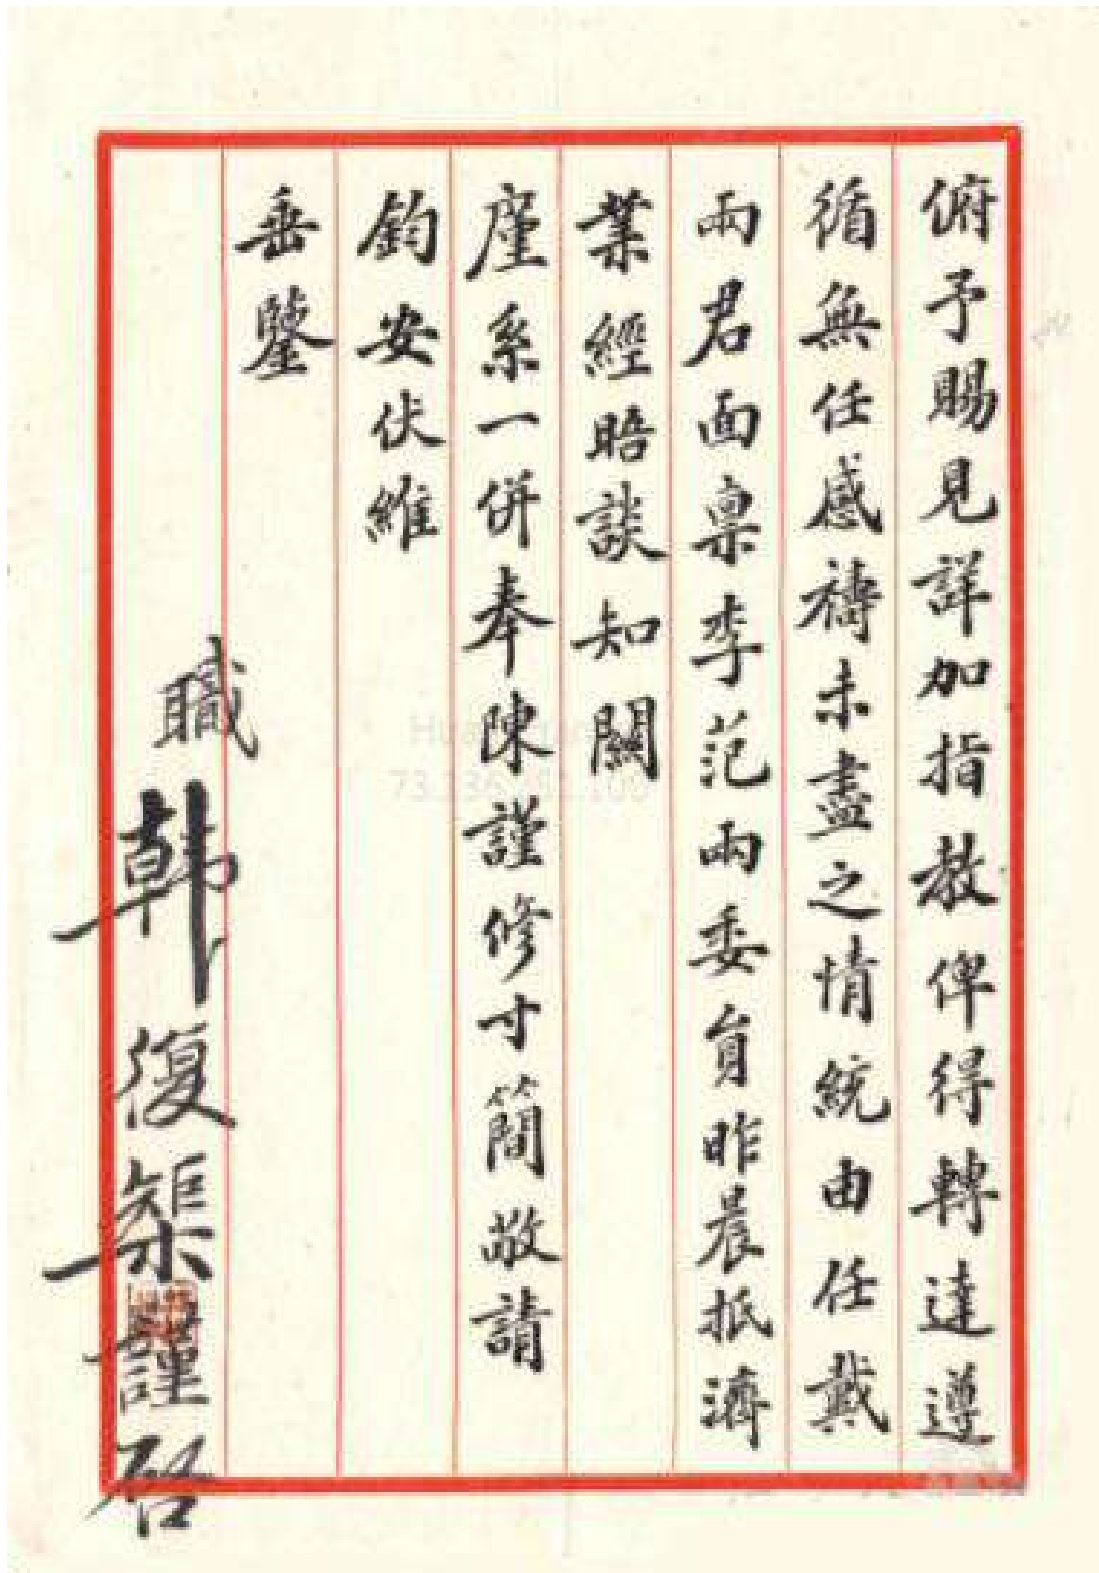 俯予賜見詳加指教俾得轉達遵
循無任感禱未盡之情統由任戴
兩君面稟李范兩委員昨晨抵濟
業經晤談知關
廑系一併奉陳謹修寸簡敬請
鈞安伏維
垂鑒
職韓復榘謹啓